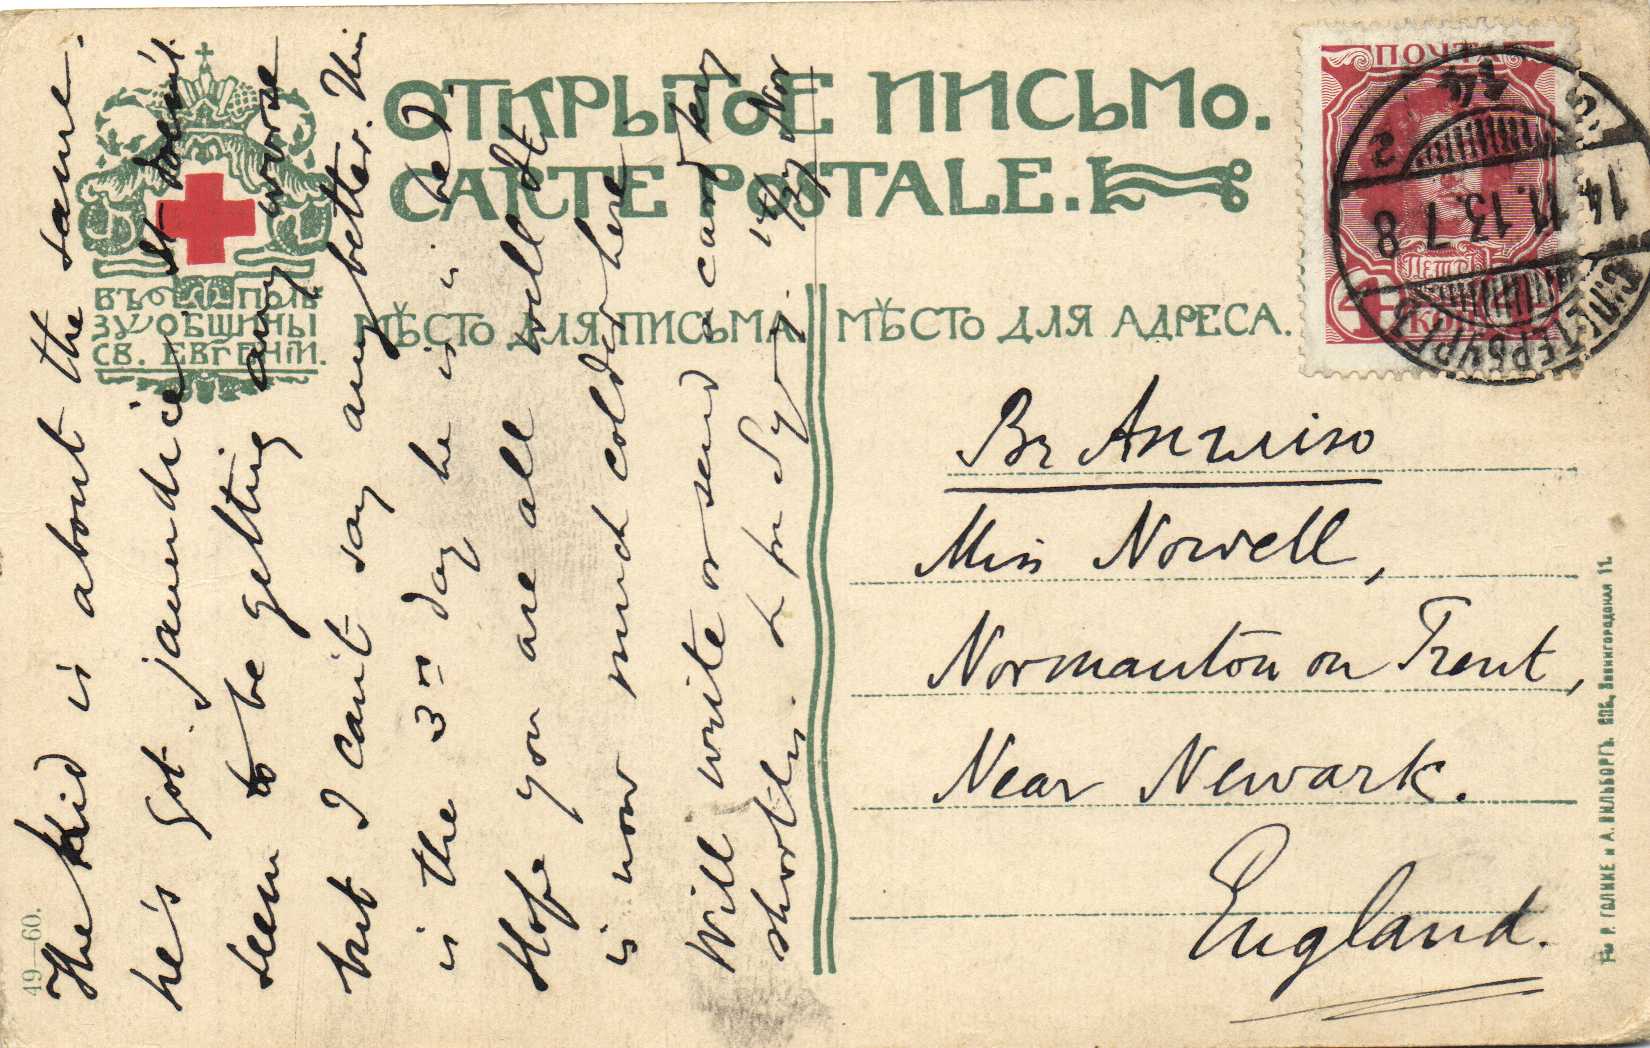 ОТКРЫТОЕ ПИСЬМО.
CARTE POSTALE.
ВЪ ПОЛЬ
ЗУ ОБЩИНЫ
СВ. ЕВГЕНІИ.
МѢСТО ДЛЯ ПИСЬМА.
МѢСТО ДЛЯ АДРЕСА.
ПОЧТА
4 КОП
С.ПЕТЕРБУРГЪ
14.11.13.7
8
2
The kid is about the same.
he's got jaundice. It doesn't
seem to be getting any worse
but I can't say any better. This
is the 3rd day he is in bed.
Hope you are all well. It
is now much colder here
Will write or send a card very
shortly.
14 Nov
Въ Англію
Miss Nowell,
Normanton on Trent,
Near Newark.
England.
49—60.
Т-во Р. ГОЛИКЕ и А. ВИЛЬБОРГЪ. СПБ., Звенигородская 11.